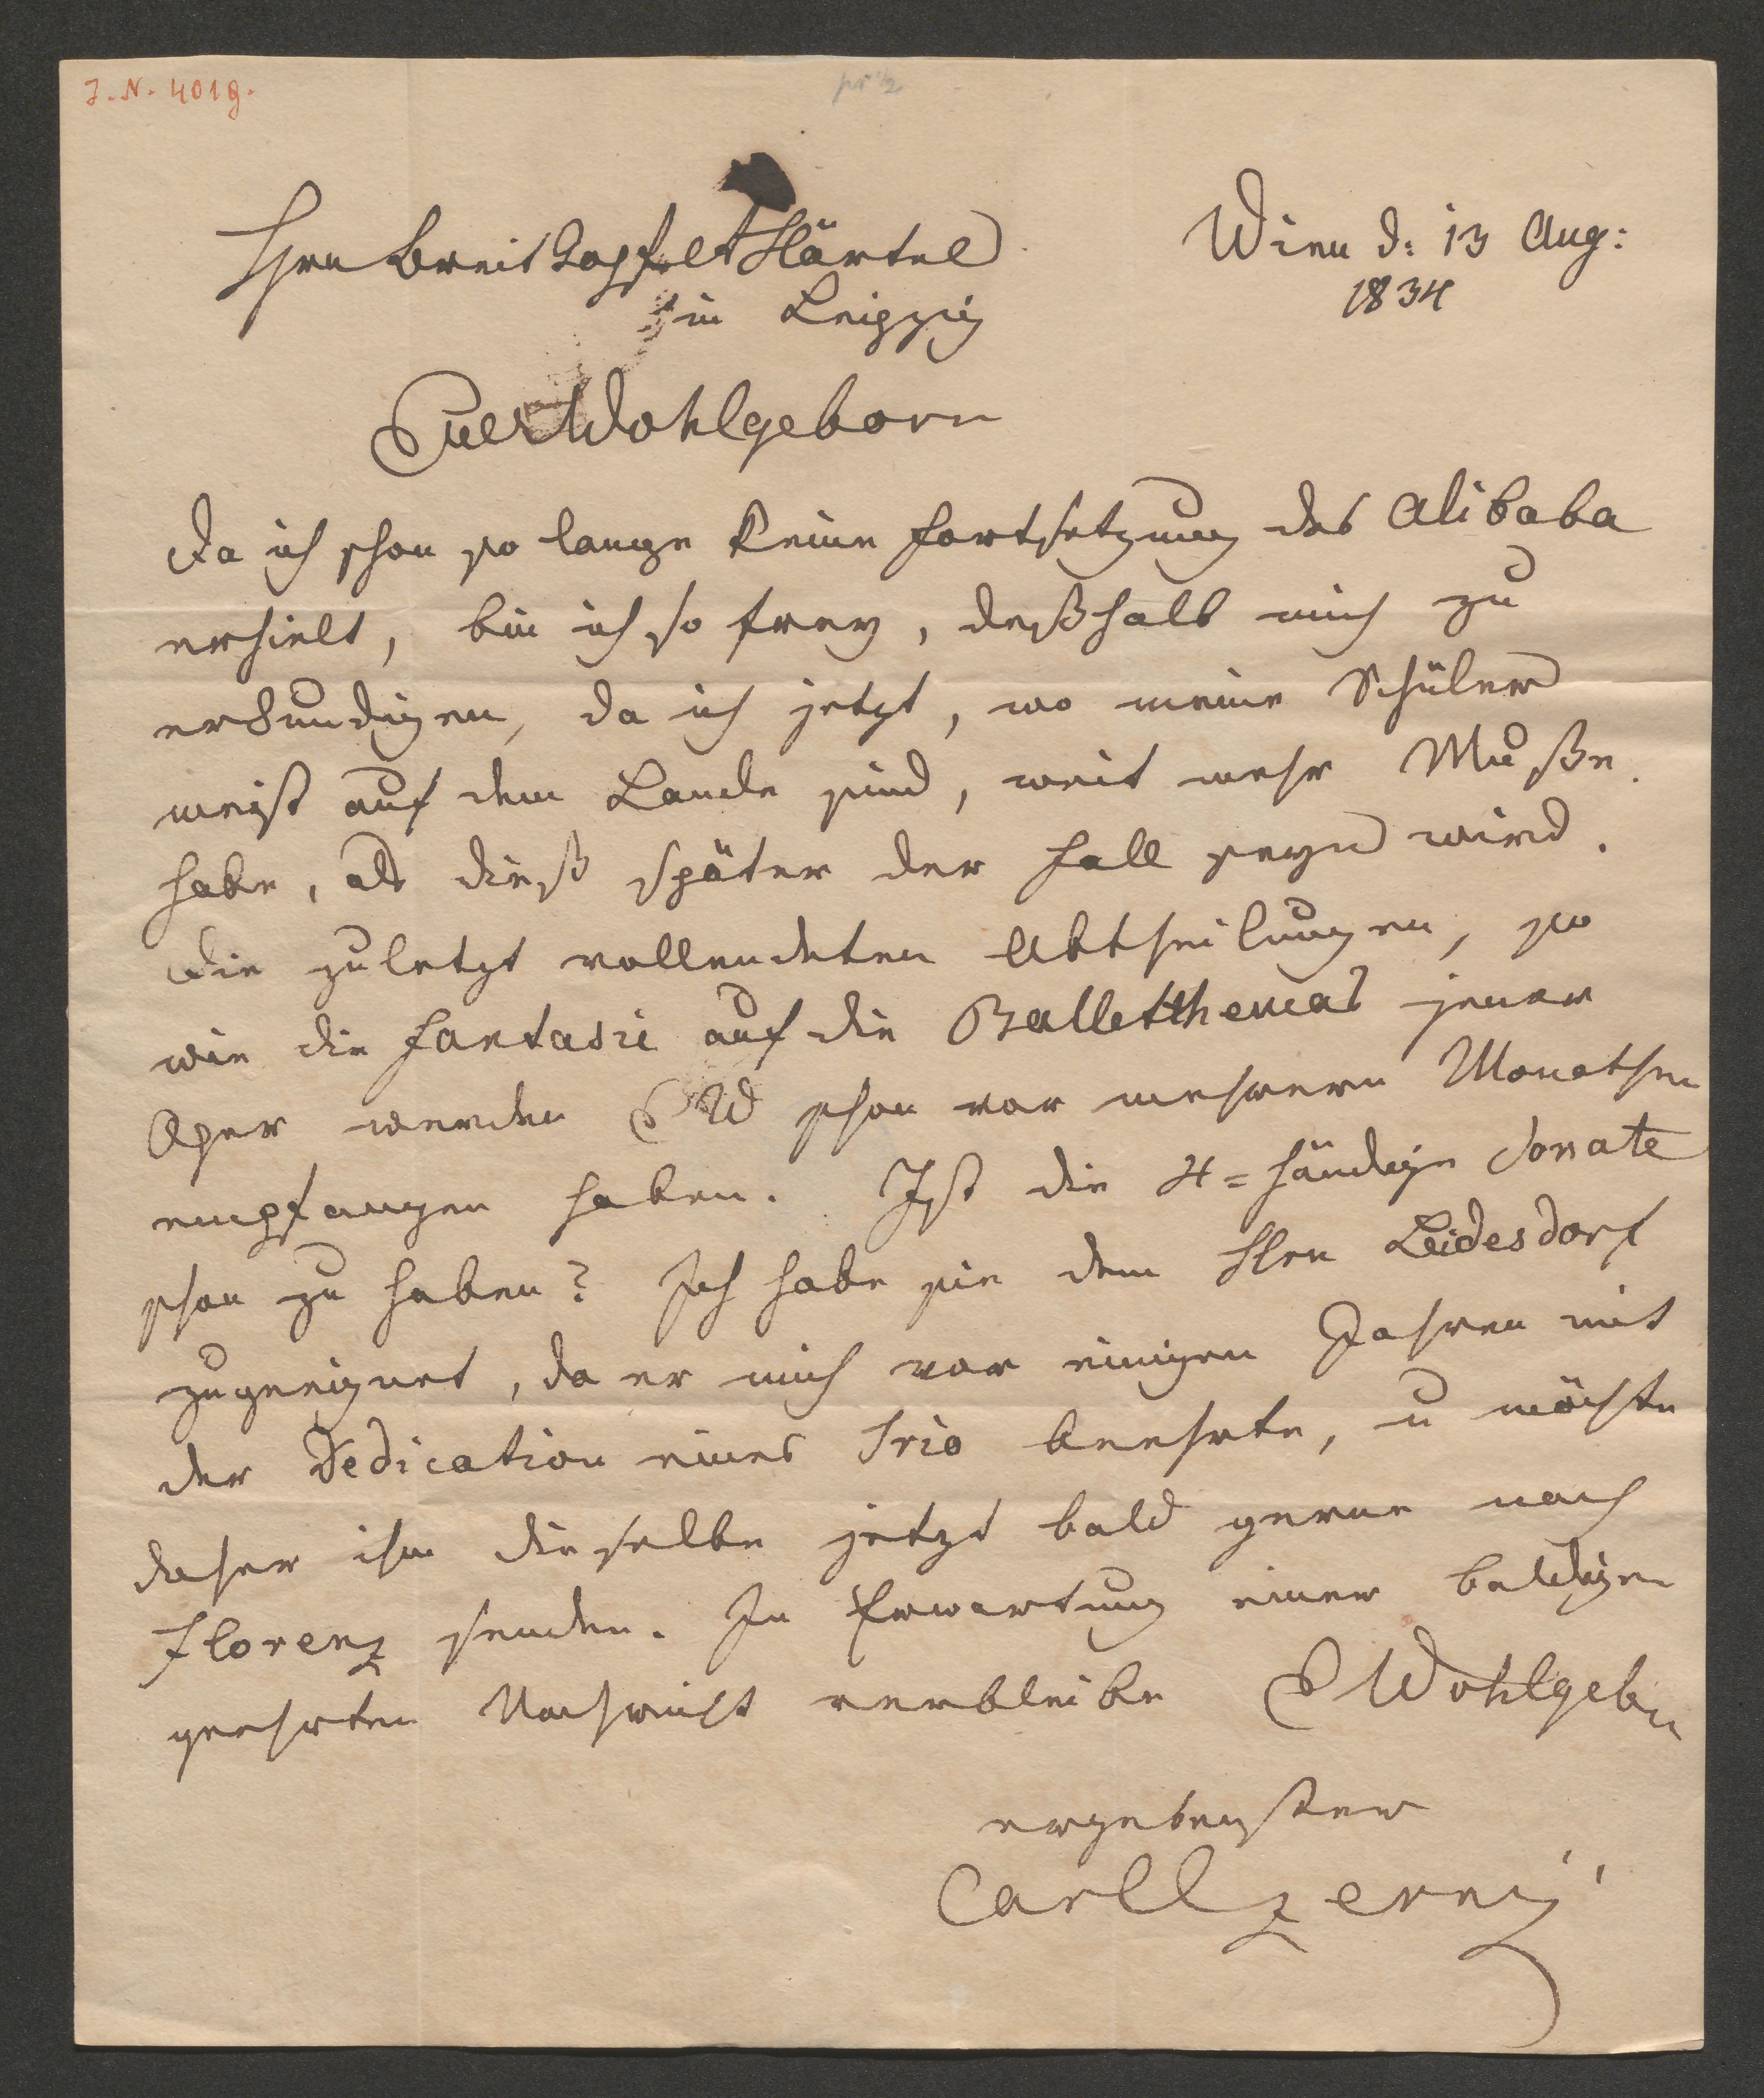 J. N. 4019.
Hrn Breitkopf et Härtel
in Leipzig
Wien d: 13 Aug:
1834
Euer Wohlgeborn
Da ich schon so lange keine Fortsetzung des Alibaba
erhielt, bin ich so frey, deßhalb mich zu
erkundigen, da ich jetzt, wo meine Schüler
meist auf dem Lande sind, weit mehr Muße
habe, als dieß später der Fall seyn wird.
Die zuletzt vollendeten Abtheilungen, so
wie die Fantasie auf die Balletthemas jener
Oper werden EW schon vor mehrern Monathen
empfangen haben. Ist die 4=händige Sonate
schon zu haben? Ich habe sie dem Hrn Leidesdorf
zugeeignet, da er mich vor einigen Jahren mit
der Dedication eines Trio beehrte, u möchte
daher ihm dieselbe jetzt bald gerne nach
Florenz senden. In Erwartung einer baldigen
geehrten Nachricht verbleibe E Wohlgebn
ergebenster
Carl Czerny